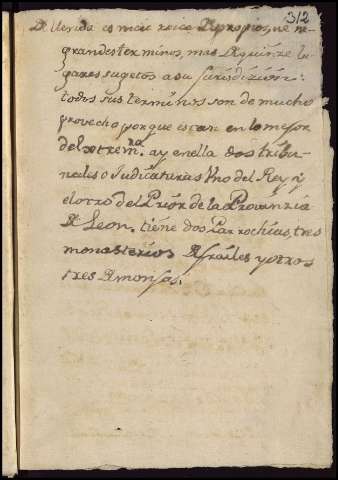 312
De llerida es mui rica De propios, que ne
grandes terminos, mas De quinze lu
gares sugetos a su Jurisdizion:
todos sus terminos son de mucho
provecho porque estan en lo mejor
del extrem.ra ay en ella dos tribu-
nales o Judicaturas Uno del Rey y
el otro del Prior de la Provinzia
De Leon. tiene dos Parrochias, tres
monasterios De frailes y otros
tres De monjas.